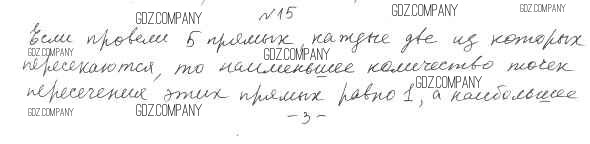 GDZ.COMPANY
№15
GDZ.COMPANY
Если провели 5 прямых, каждые две из которых
GDZ.COMPANY
GDZ.COMPANY
пересекаются, то наименьшее количество точек
GDZ.COMPANY
пересечения этих прямых равно 1, а наибольшее
GDZ.COMPANY
GDZ.COMPANY
-3-